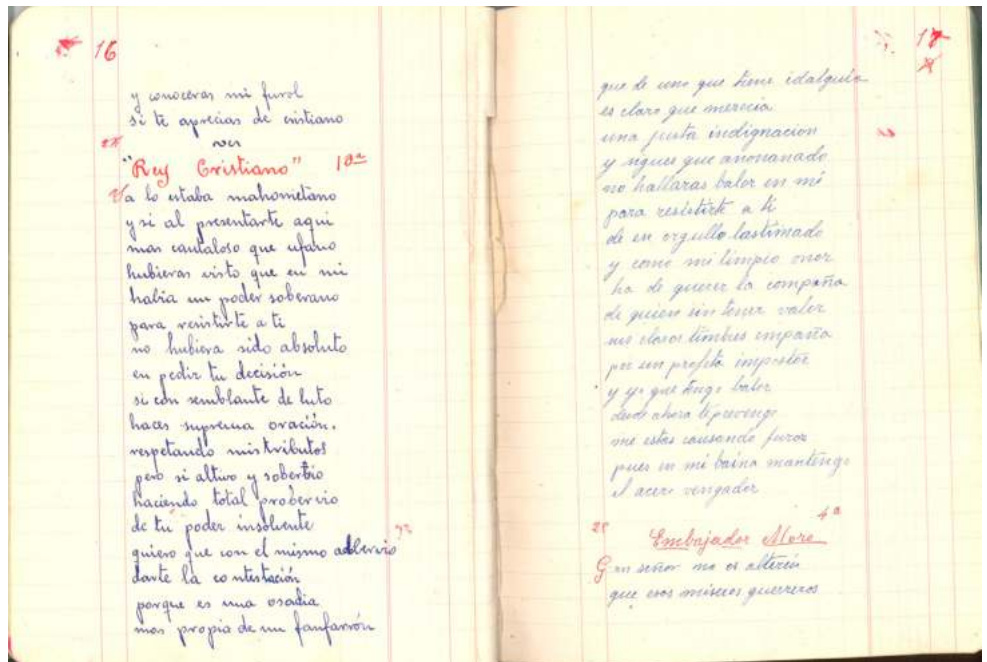 16
y conoceras mi furol
si te aprecias de cristiano
ver
"Rey Cristiano" 10ª
Ya lo estaba mahometano
y si al presentarte aqui
mas cauteloso que ufano
hubieras visto que en mi
habia un poder soberano
para resistirte a ti
no hubiera sido absoluto
en pedir tu decisión
si con semblante de luto
haces suprema oración.
respetando mis tributos
pero si altivo y soberbio
haciendo total probervio
de tu poder insolvente
quiero que con el mismo
darte la contestación
porque es una osadia
mas propia de un fanfarrón
17
que de uno que tiene idalguia
es claro que merecia
una justa indignacion
y sigues que anonanado
no hallaras balor en mi
para resistirte a ti
de en orgullo lastimado
y como mi limpio onor
ha de querer la compañia
de quien sin tener valor
sus claros timbres empaña
por un profeta impostor
y yo que tengo balor
desde ahora te prevengo
me estas causando furor
pues en mi baina mantengo
el acero vengador
4ª
Embajador Moro
Gran señor no os altereis
que esos miseros guerreros